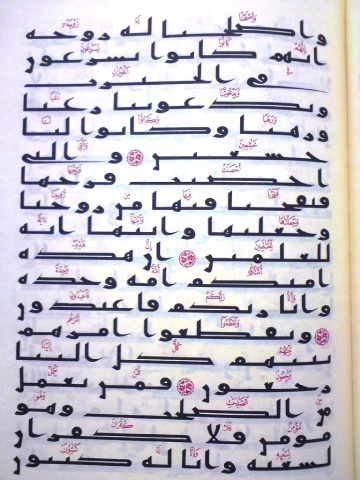 واصلحنا له زوجه
انهم كانوا يسرعون
في الخيرت
ويدعوننا رغبا
ورهبا وكانوا لنا
خشعين والتي
احصنت فرجها
فنفخنا فيها من روحنا
وجعلنها وابنها اية
للعلمين ان هذه
امتكم امة وحدة
وانا ربكم فاعبدون
وتقطعوا امرهم
بينهم كل الينا
رجعون فمن يعمل
من الصلحت وهو
مؤمن فلا كفران
لسعيه وانا له كتبون